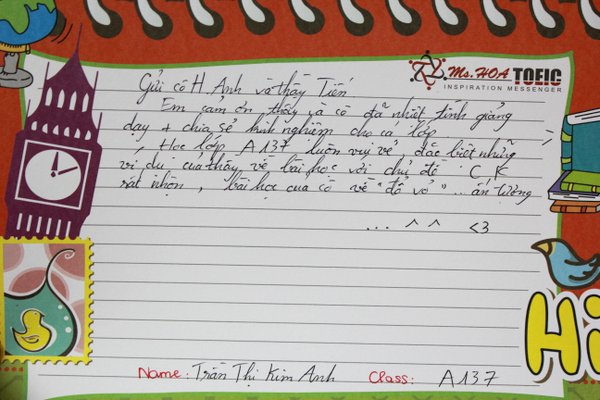 Ms. HOA TOEIC
INSPIRATION MESSENGER
Gửi cô H.Anh và thầy Tiến
Em cảm ơn thầy và cô đã nhiệt tình giảng
dạy + chia sẻ kinh nghiệm cho cả lớp
Học lớp A137 luôn vui vẻ, đặc biệt những
ví dụ của thầy về bài học với chủ đề CK
rất nhộn, bài học của cô về "đồ vỏ" ... ấn tượng
... ^ ^ <3
Hi
Name: Trần Thị Kim Anh Class: A137